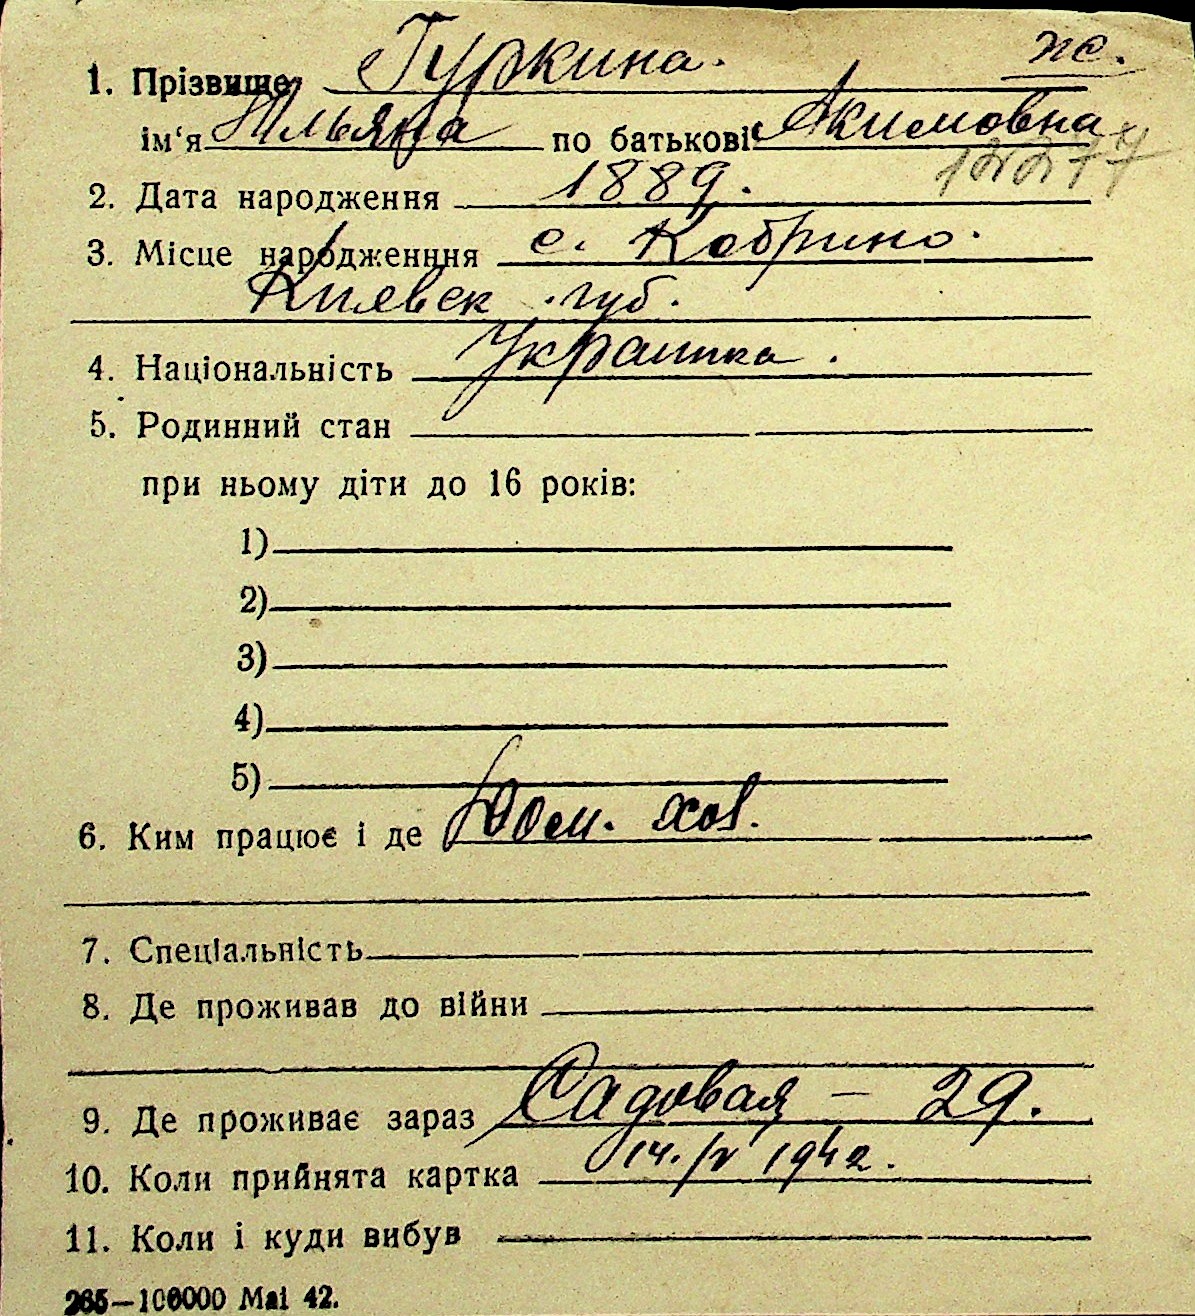 ж.
1. Прізвище Гуркина.
ім'я Ульяна по батькові Акимовна
12277
2. Дата народження 1889.
3. Місце народженння с. Кобрино.
Киевск. губ.
4. Національність Украинка.
5. Родинний стан
при ньому діти до 16 років:
1)
2)
3)
4)
5)
6. Ким працює і де Дом. хоз.
7. Спеціальність
8. Де проживав до війни
9. Де проживає зараз Садовая — 29.
10. Коли прийнята картка 14. IV 1942.
11. Коли і куди вибув
265—100000 Mai 42.